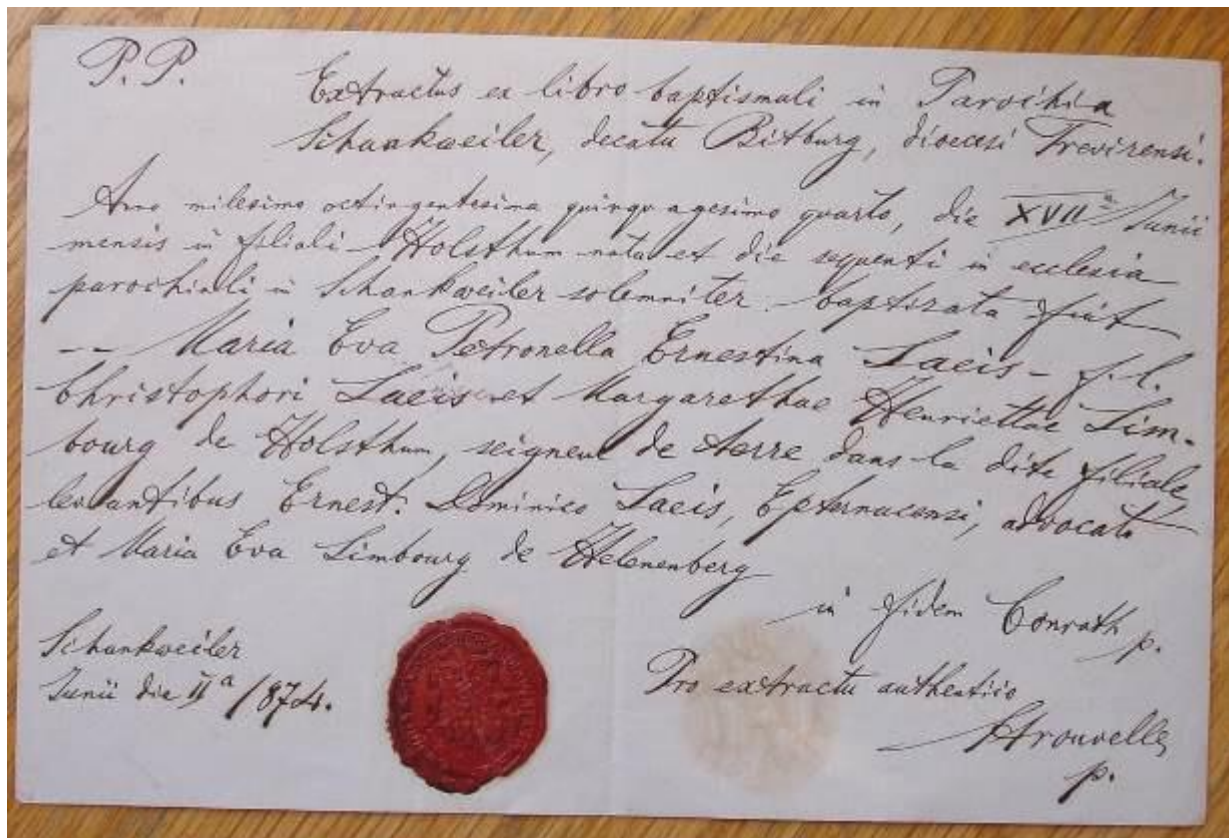 P. P.
Extractus ex libro baptismali in Parochia
Schankweiler, decatu Bitburg, dioecesi Trevirensi.
Anno milesimo octingentesimo quinquagesimo quarto, die XVII a Junii
mensis in filiali Holsthum nata et die sequenti in ecclesia
parochiali in Schankweiler solemniter baptizata fuit
-- Maria Eva Petronella Ernestina Laeis - f. l.
Christophori Laeis et Margarethae Henriettae Lim-
bourg de Holsthum, seigneur de terre dans la dite filiale,
levantibus Ernest. Dominico Laeis, Epternacensi, advocato
et Maria Eva Limbourg de Helenenberg
in fidem Conrath p.
Schankweiler
Junii die II a 1874.
Pro extractu authentico
p.